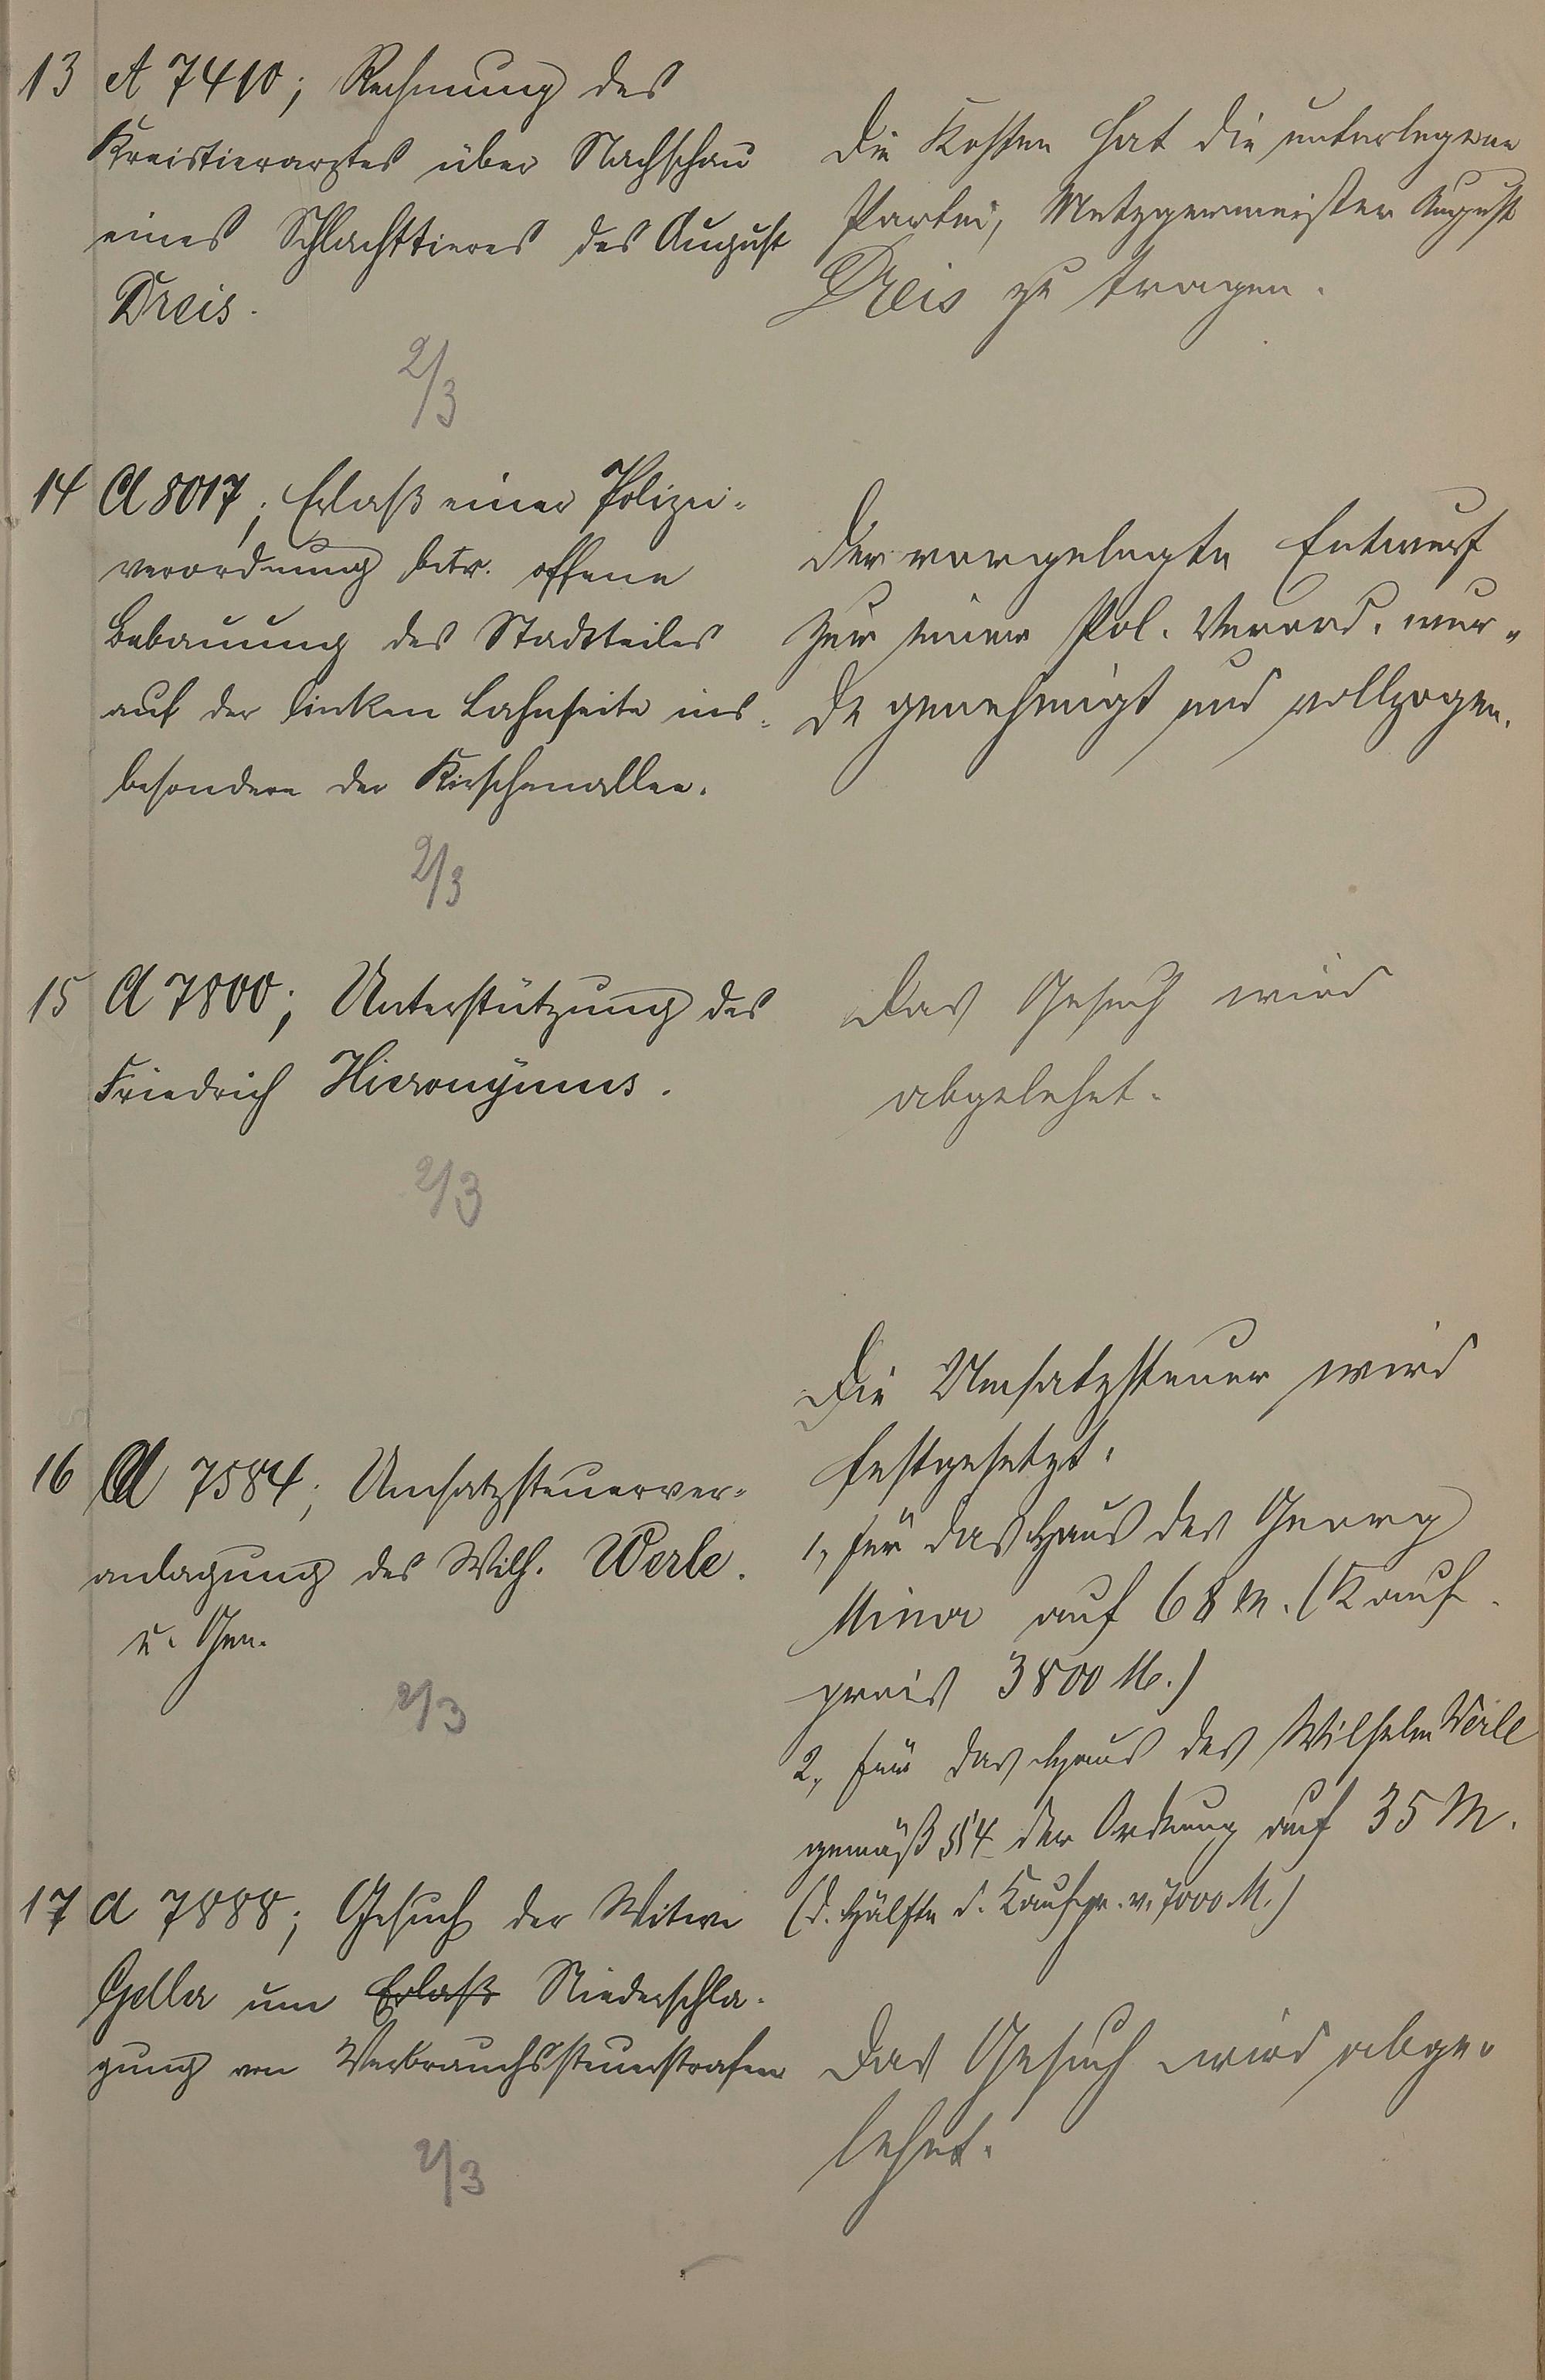 13 A 7410; Rechnung des
Kreistierarztes über Nachschau
eines Schlachttieres des August
Dreis.
2/3
Die Kosten hat die unterlegene
Partei, Metzgermeister August
Dreis zu tragen.
14 A 8017; Erlaß einer Polizei-
verordnung betr. offene
Bebauung des Stadtteiles
auf der linken Lahnseite ins-
besondere der Kirschenallee.
2/3
Der vorgelegte Entwurf
zur einer Pol. Verord. wur-
de genehmigt und vollzogen.
15 A 7800; Unterstützung des
Friedrich Hieronÿmus.
2/3
Das Gesuch wird
abgelehnt.
16 A 7584; Umsatzsteuerver-
anlagung des Wilh. Werle.
u. Gen.
2/3
Die Umsatzsteuer wird
festgesetzt:
1, für das Haus des Georg
auf 68 M. (Kauf-
preis 3800 M.)
2, für das Haus des Wilhelm Werle
gemäß § 4 der Ordnung auf 35 M.
(d. Hälfte d. Kaufpr. v. 7000 M.)
17 A 7888; Gesuch der Witwe
um Erlaß Niederschla-
gung von Verbrauchssteuerstrafen
2/3
Das Gesuch wird abge-
lehnt.